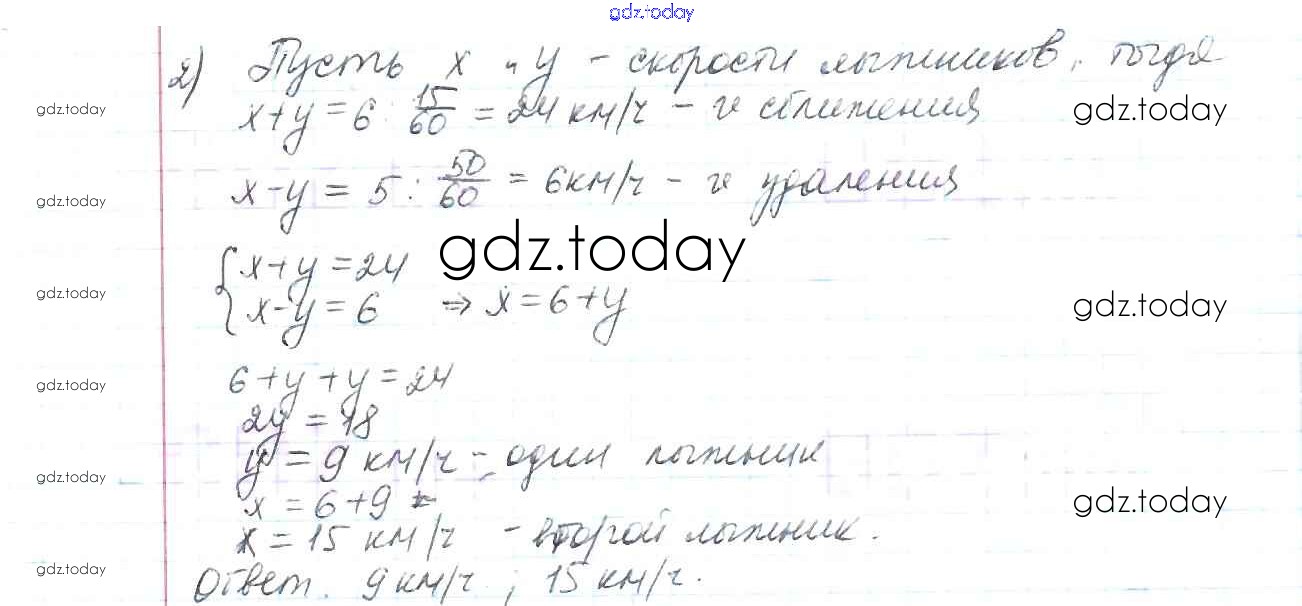 gdz.today
2) Пусть x и y - скорости лыжников, тогда
gdz.today
x+y = 6 : 15/60 = 24 км/ч - v сближения
gdz.today
gdz.today
x-y = 5 : 50/60 = 6 км/ч - v удаления
gdz.today
{x+y = 24
gdz.today
x-y = 6 ⇒ x = 6+y
gdz.today
gdz.today
6+y+y = 24
gdz.today
2y = 18
y = 9 км/ч - один лыжник
gdz.today
x = 6+9
gdz.today
x = 15 км/ч - второй лыжник.
gdz.today
Ответ. 9 км/ч ; 15 км/ч.